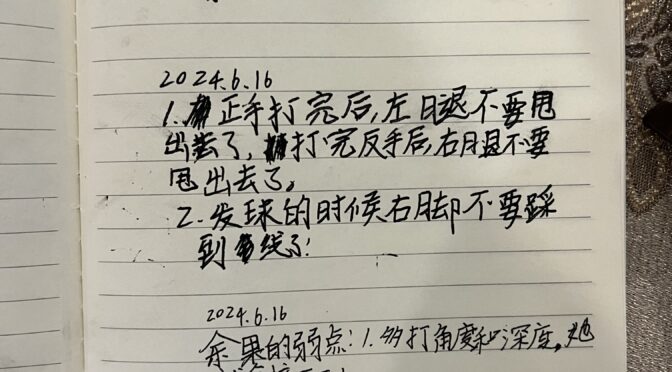 2024.6.16
1. 正手打完后,左腿不要甩
出去了,打完反手后,右腿不要
甩出去了。
2. 发球的时候右脚不要踩
到线了!
2024.6.16
余果的弱点:1.多打角度和深度,她